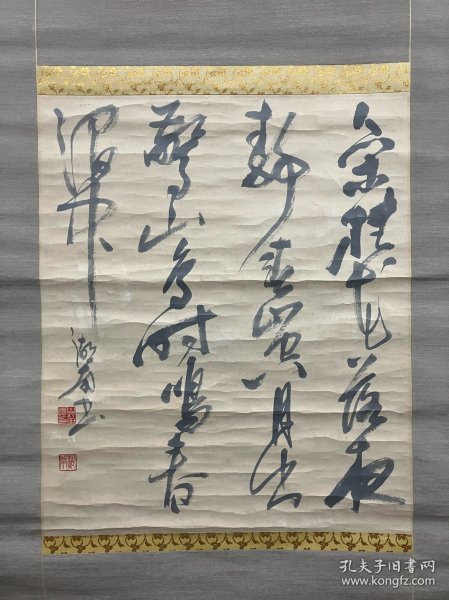 人閑桂花落夜
静春山空月出
驚山鳥時鳴春
澗中
孔夫子旧书网
www.kongfz.com